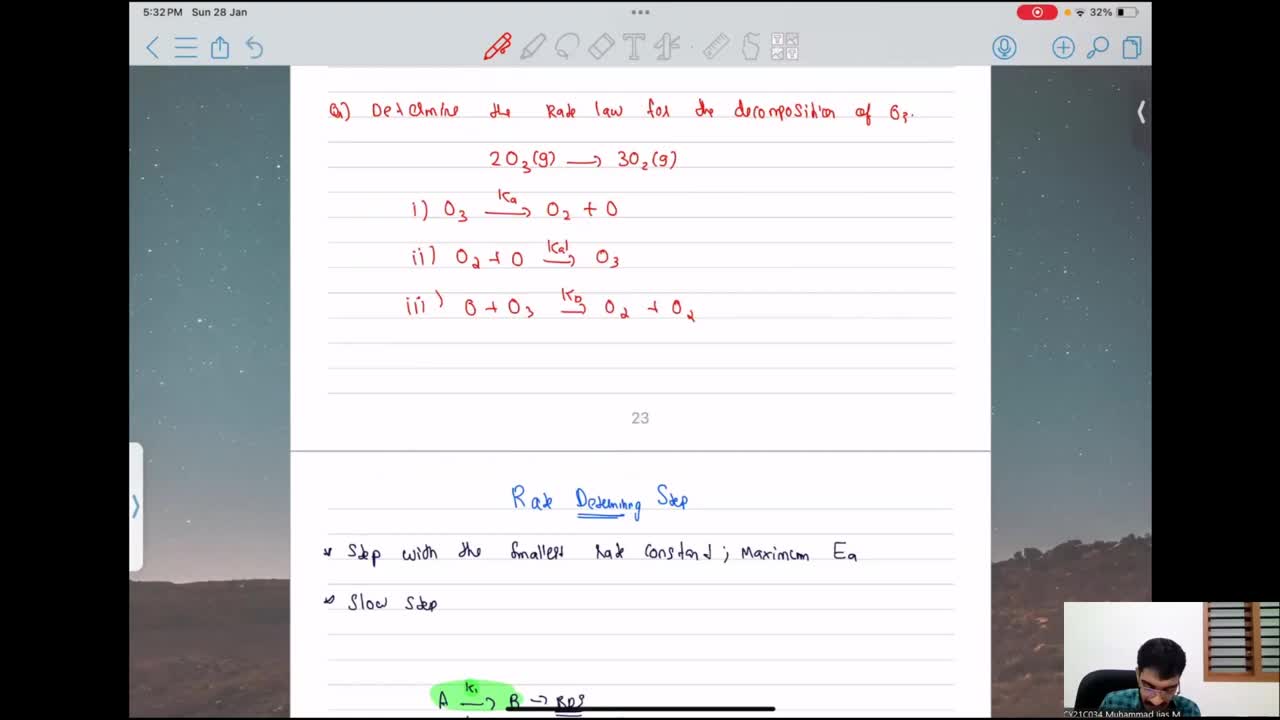 5:32 PM Sun 28 Jan
32%
Q) Determine the Rate law for the decomposition of O₃.
2O₃(g) → 3O₂(g)
i) O₃ —Ka→ O₂ + O
ii) O₂ + O —Ka'→ O₃
iii) O + O₃ —Kb→ O₂ + O₂
23
Rate Determining Step
* Step with the smallest rate constant; Maximum Ea
* Slow step
A —K₁→ B → RDS
CY21C034 Muhammad Ijas M